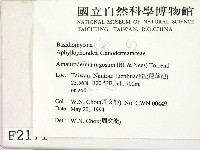 國立自然科學博物館
NATIONAL MUSEUM OF NATURAL SCIENCE
TAICHUNG, TAIWAN, R.O.CHINA
Basidiomycota
Aphyllophorales, Ganodermataceae
Amauroderma rugosum (Bl. & Nees) Torrend
Loc.: Taiwan, Nantou, Lienhuachih
23.56N,
on soil.
Col.: W.N. Chou(周文能) No: CWN 00669
Date: May 20, 1994
Det.: W.N. Chou(周文能)